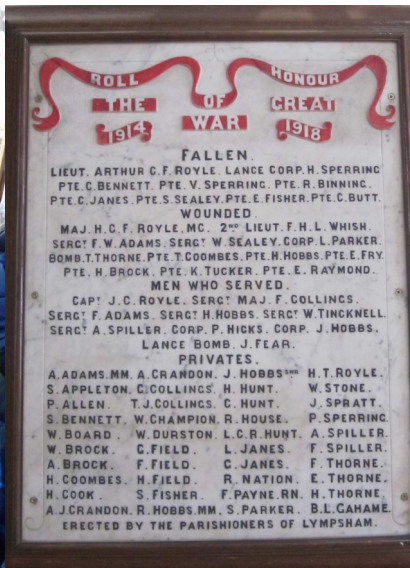 ROLL OF HONOUR
THE GREAT
1914 WAR 1918
FALLEN.
LIEUT. ARTHUR C.F. ROYLE. LANCE CORP. H. SPERRING
PTE. C. BENNETT. PTE. V. SPERRING. PTE. R. BINNING.
PTE. C. JANES. PTE. S. SEALEY. PTE. E. FISHER. PTE. C. BUTT.
WOUNDED.
MAJ. H.C.F. ROYLE, MC. 2ND LIEUT. F.H.L. WHISH.
SERGT. F.W. ADAMS. SERGT. W. SEALEY. CORP. L. PARKER.
BOMB. T. THORNE. PTE. T. COOMBES. PTE. H. HOBBS. PTE. E. FRY.
PTE. H. BROCK. PTE. K. TUCKER. PTE. E. RAYMOND.
MEN WHO SERVED.
CAPT. J.C. ROYLE. SERGT. MAJ. F. COLLINGS.
SERGT. F. ADAMS. SERGT. H. HOBBS. SERGT. W. TINCKNELL.
SERGT. A. SPILLER. CORP. P. HICKS. CORP. J. HOBBS.
LANCE BOMB. J. FEAR.
PRIVATES.
A. ADAMS. MM. A. CRANDON. J. HOBBS SNR H.T. ROYLE.
S. APPLETON. C. COLLINGS. H. HUNT. W. STONE.
P. ALLEN. T.J. COLLINGS. C. HUNT. J. SPRATT.
S. BENNETT. W. CHAMPION. R. HOUSE. P. SPERRING.
W. BOARD. W. DURSTON. L.C.R. HUNT. A. SPILLER.
W. BROCK. C. FIELD. L. JANES. F. SPILLER.
A. BROCK. F. FIELD. C. JANES. F. THORNE.
H. COOMBES. H. FIELD. R. NATION. E. THORNE.
H. COOK. S. FISHER. F. PAYNE. RN. H. THORNE.
A.J. CRANDON. R. HOBBS. MM. S. PARKER. B.L. CAHAME.
ERECTED BY THE PARISHIONERS OF LYMPSHAM.